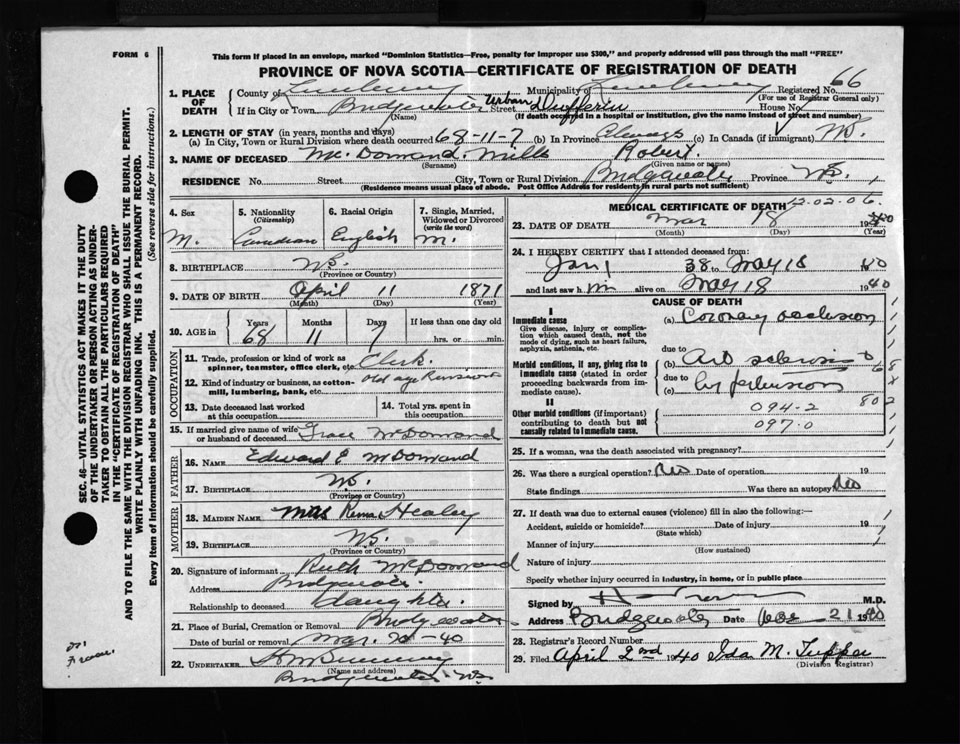 FORM 6
This form if placed in an envelope, marked "Dominion Statistics—Free, penalty for improper use $300," and properly addressed will pass through the mail "FREE"
PROVINCE OF NOVA SCOTIA—CERTIFICATE OF REGISTRATION OF DEATH
SEC. 46—VITAL STATISTICS ACT MAKES IT THE DUTY
OF THE UNDERTAKER OR PERSON ACTING AS UNDER-
TAKER TO OBTAIN ALL THE PARTICULARS REQUIRED
IN THE "CERTIFICATE OF REGISTRATION OF DEATH"
AND TO FILE THE SAME WITH THE DIVISION REGISTRAR WHO SHALL ISSUE THE BURIAL PERMIT.
WRITE PLAINLY WITH UNFADING INK. THIS IS A PERMANENT RECORD.
Every item of Information should be carefully supplied. (See reverse side for instructions.)
1. PLACE OF DEATH County of Lunenburg Municipality of Lunenburg Registered No. 66
(For use of Registrar General only)
If in City or Town Bridgewater Urban Street Dufferin House No.
(Name) (If death occurred in a hospital or institution, give name instead of street and number)
2. LENGTH OF STAY (in years, months and days)
(a) In City, Town or Rural Division where death occurred 68-11-7 (b) In Province Always (c) In Canada (if immigrant)
3. NAME OF DECEASED Mills Robert
(Surname) (Given name or names)
RESIDENCE No. Street City, Town or Rural Division Bridgewater Province N.S.
(Residence means usual place of abode. Post Office Address for residents in rural parts not sufficient)
4. Sex M.
5. Nationality (Citizenship) Canadian
6. Racial Origin English
7. Single, Married, Widowed or Divorced (write the word) M.
8. BIRTHPLACE N.S.
(Province or Country)
9. DATE OF BIRTH April 11 1871
(Month) (Day) (Year)
10. AGE in Years 68 Months 11 Days 7 If less than one day old hrs. or min.
OCCUPATION
11. Trade, profession or kind of work as spinner, teamster, office clerk, etc. Clerk.
12. Kind of industry or business, as cotton-mill, lumbering, bank, etc. old age
13. Date deceased last worked at this occupation
14. Total yrs. spent in this occupation
15. If married give name of wife or husband of deceased Grace
FATHER
16. NAME Edward E
17. BIRTHPLACE N.S.
(Province or Country)
MOTHER
18. MAIDEN NAME Healey
19. BIRTHPLACE N.S.
(Province or Country)
20. Signature of informant Ruth
Address Bridgewater
Relationship to deceased daughter
21. Place of Burial, Cremation or Removal Bridgewater
Date of burial or removal Mar.
22. UNDERTAKER
(Name and address)
Bridgewater NS
MEDICAL CERTIFICATE OF DEATH 12.02.06.
23. DATE OF DEATH Mar 18 1940
(Month) (Day) (Year)
24. I HEREBY CERTIFY that I attended deceased from:
Jan 1 38 to May 18 40
and last saw h im alive on May 18 1940
CAUSE OF DEATH
I
Immediate cause (a) Coronary occlusion
Give disease, injury or complication which caused death, not the mode of dying, such as heart failure, asphyxia, asthenia, etc.
due to
Morbid conditions, if any, giving rise to immediate cause (stated in order proceeding backwards from immediate cause). (b) Art sclerosis
due to
(c) hypertension
II
Other morbid conditions (if important) contributing to death but not causally related to immediate cause.
094-2
097.0
25. If a woman, was the death associated with pregnancy?
26. Was there a surgical operation? Date of operation 19
State findings Was there an autopsy
27. If death was due to external causes (violence) fill in also the following:—
Accident, suicide or homicide? Date of injury 19
(State which)
Manner of injury
(How sustained)
Nature of injury
Specify whether injury occurred in industry, in home, or in public place
Signed by M.D.
Address Bridgewater Date 21 1940
28. Registrar's Record Number
29. Filed April 2nd 1940 Ida M. Tupper
(Division Registrar)